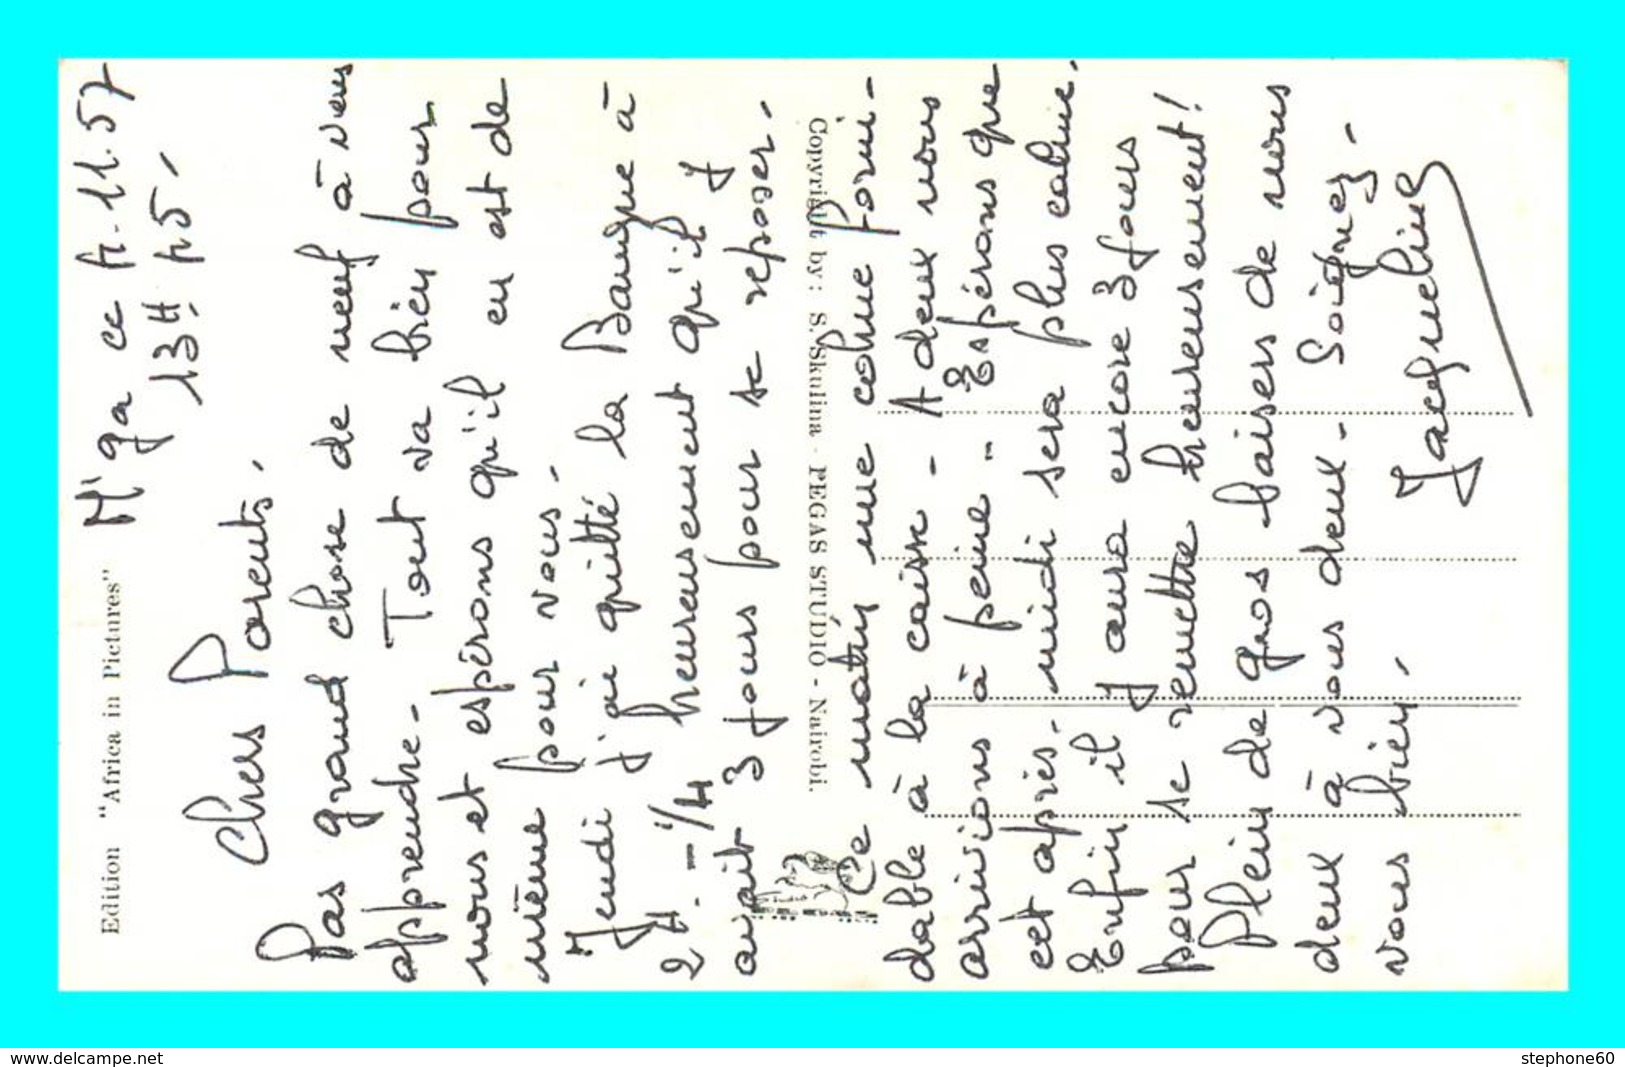 Edition "Africa in Pictures"
M'ga ce 11.57
13H 45.
Chers Parents.
Pas grand chose de neuf à vous
apprendre. Tout va bien pour
nous et espérons qu'il en est de
même pour vous.
Jeudi j'ai quitté la Banque à
2H. - 1/4 heureusement qu'il y
avait 3 jours pour se reposer.
Copyright by: S. Skulina - PEGAS STUDIO - Nairobi.
Ce matin une cohue formi-
dable à la caisse - A deux nous
arrivions à peine - Espérons que
cet après-midi sera plus calme.
Enfin il y aura encore 3 jours
pour se remettre heureusement!
Plein de gros baisers de nous
deux à vous deux. Soignez-
vous bien.
Jacqueline
www.delcampe.net
stephone60